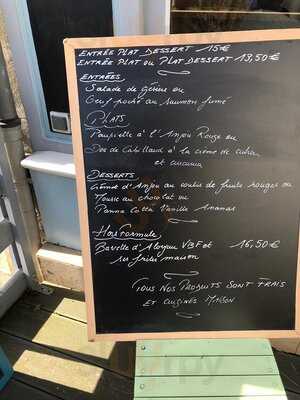 ENTRÉE PLAT DESSERT 15€
ENTRÉE PLAT OU PLAT DESSERT 13,50€
ENTRÉES
Salade de Gésier ou
Oeuf poché au saumon fumé
PLATS
Paupiette à l'Anjou Rouge ou
Dos de Cabillaud à la crème de citron
et curcuma
DESSERTS
Crème d'Anjou au coulis de fruits rouges ou
Mousse au chocolat ou
Panna Cotta Vanille Ananas
Hors Formule
Bavette d'Aloyau VBF et 16,50€
ses frites maison
TOUS NOS PRODUITS SONT FRAIS
ET CUISINÉS MAISON